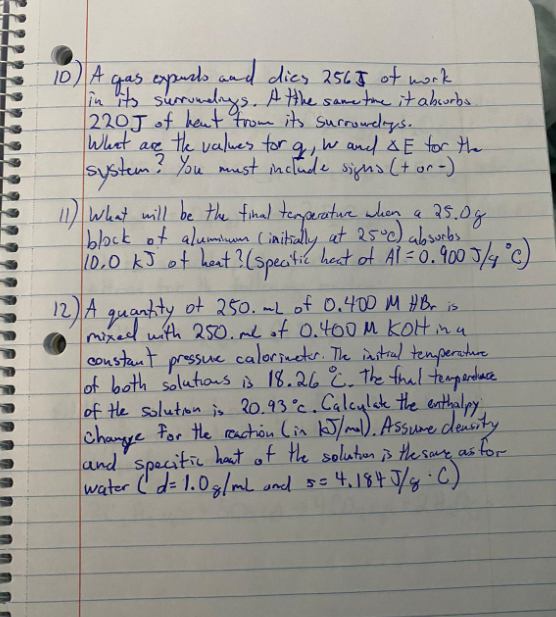 10) A gas expands and dies 256 J of work
in its surroundings. At the same time it absorbs
220 J of heat from its surroundings.
What are the values for q, w and ΔE for the
system? You must include signs (+ or -)
11) What will be the final temperature when a 25.0 g
block of aluminum (initially at 25°C) absorbs
10.0 kJ of heat? (specific heat of Al = 0.900 J/g °C)
12) A quantity of 250. mL of 0.400 M HBr is
mixed with 250. ml of 0.400 M KOH in a
constant pressure calorimeter. The initial temperature
of both solutions is 18.26 °C. The final temperature
of the solution is 20.93 °C. Calculate the enthalpy
change for the reaction (in kJ/mol). Assume density
and specific heat of the solution is the same as for
water (d = 1.0 g/mL and s = 4.184 J/g · C)